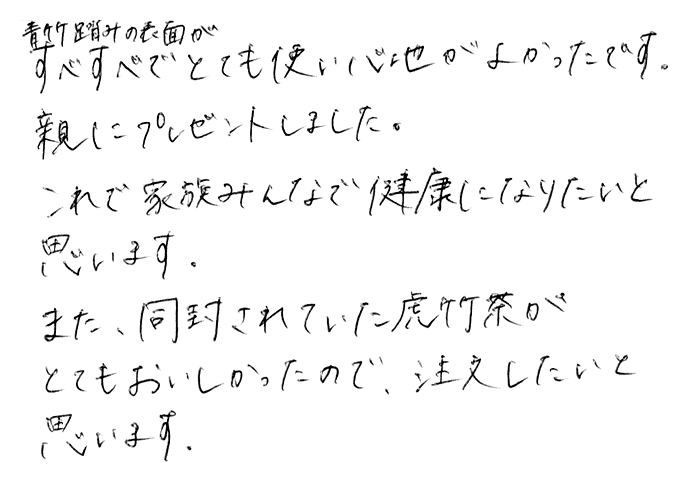 青竹踏みの表面が
すべすべでとても使い心地がよかったです。
親にプレゼントしました。
これで家族みんなで健康になりたいと
思います.
また、同封されていた虎竹茶が
とてもおいしかったので、注文したいと
思います.